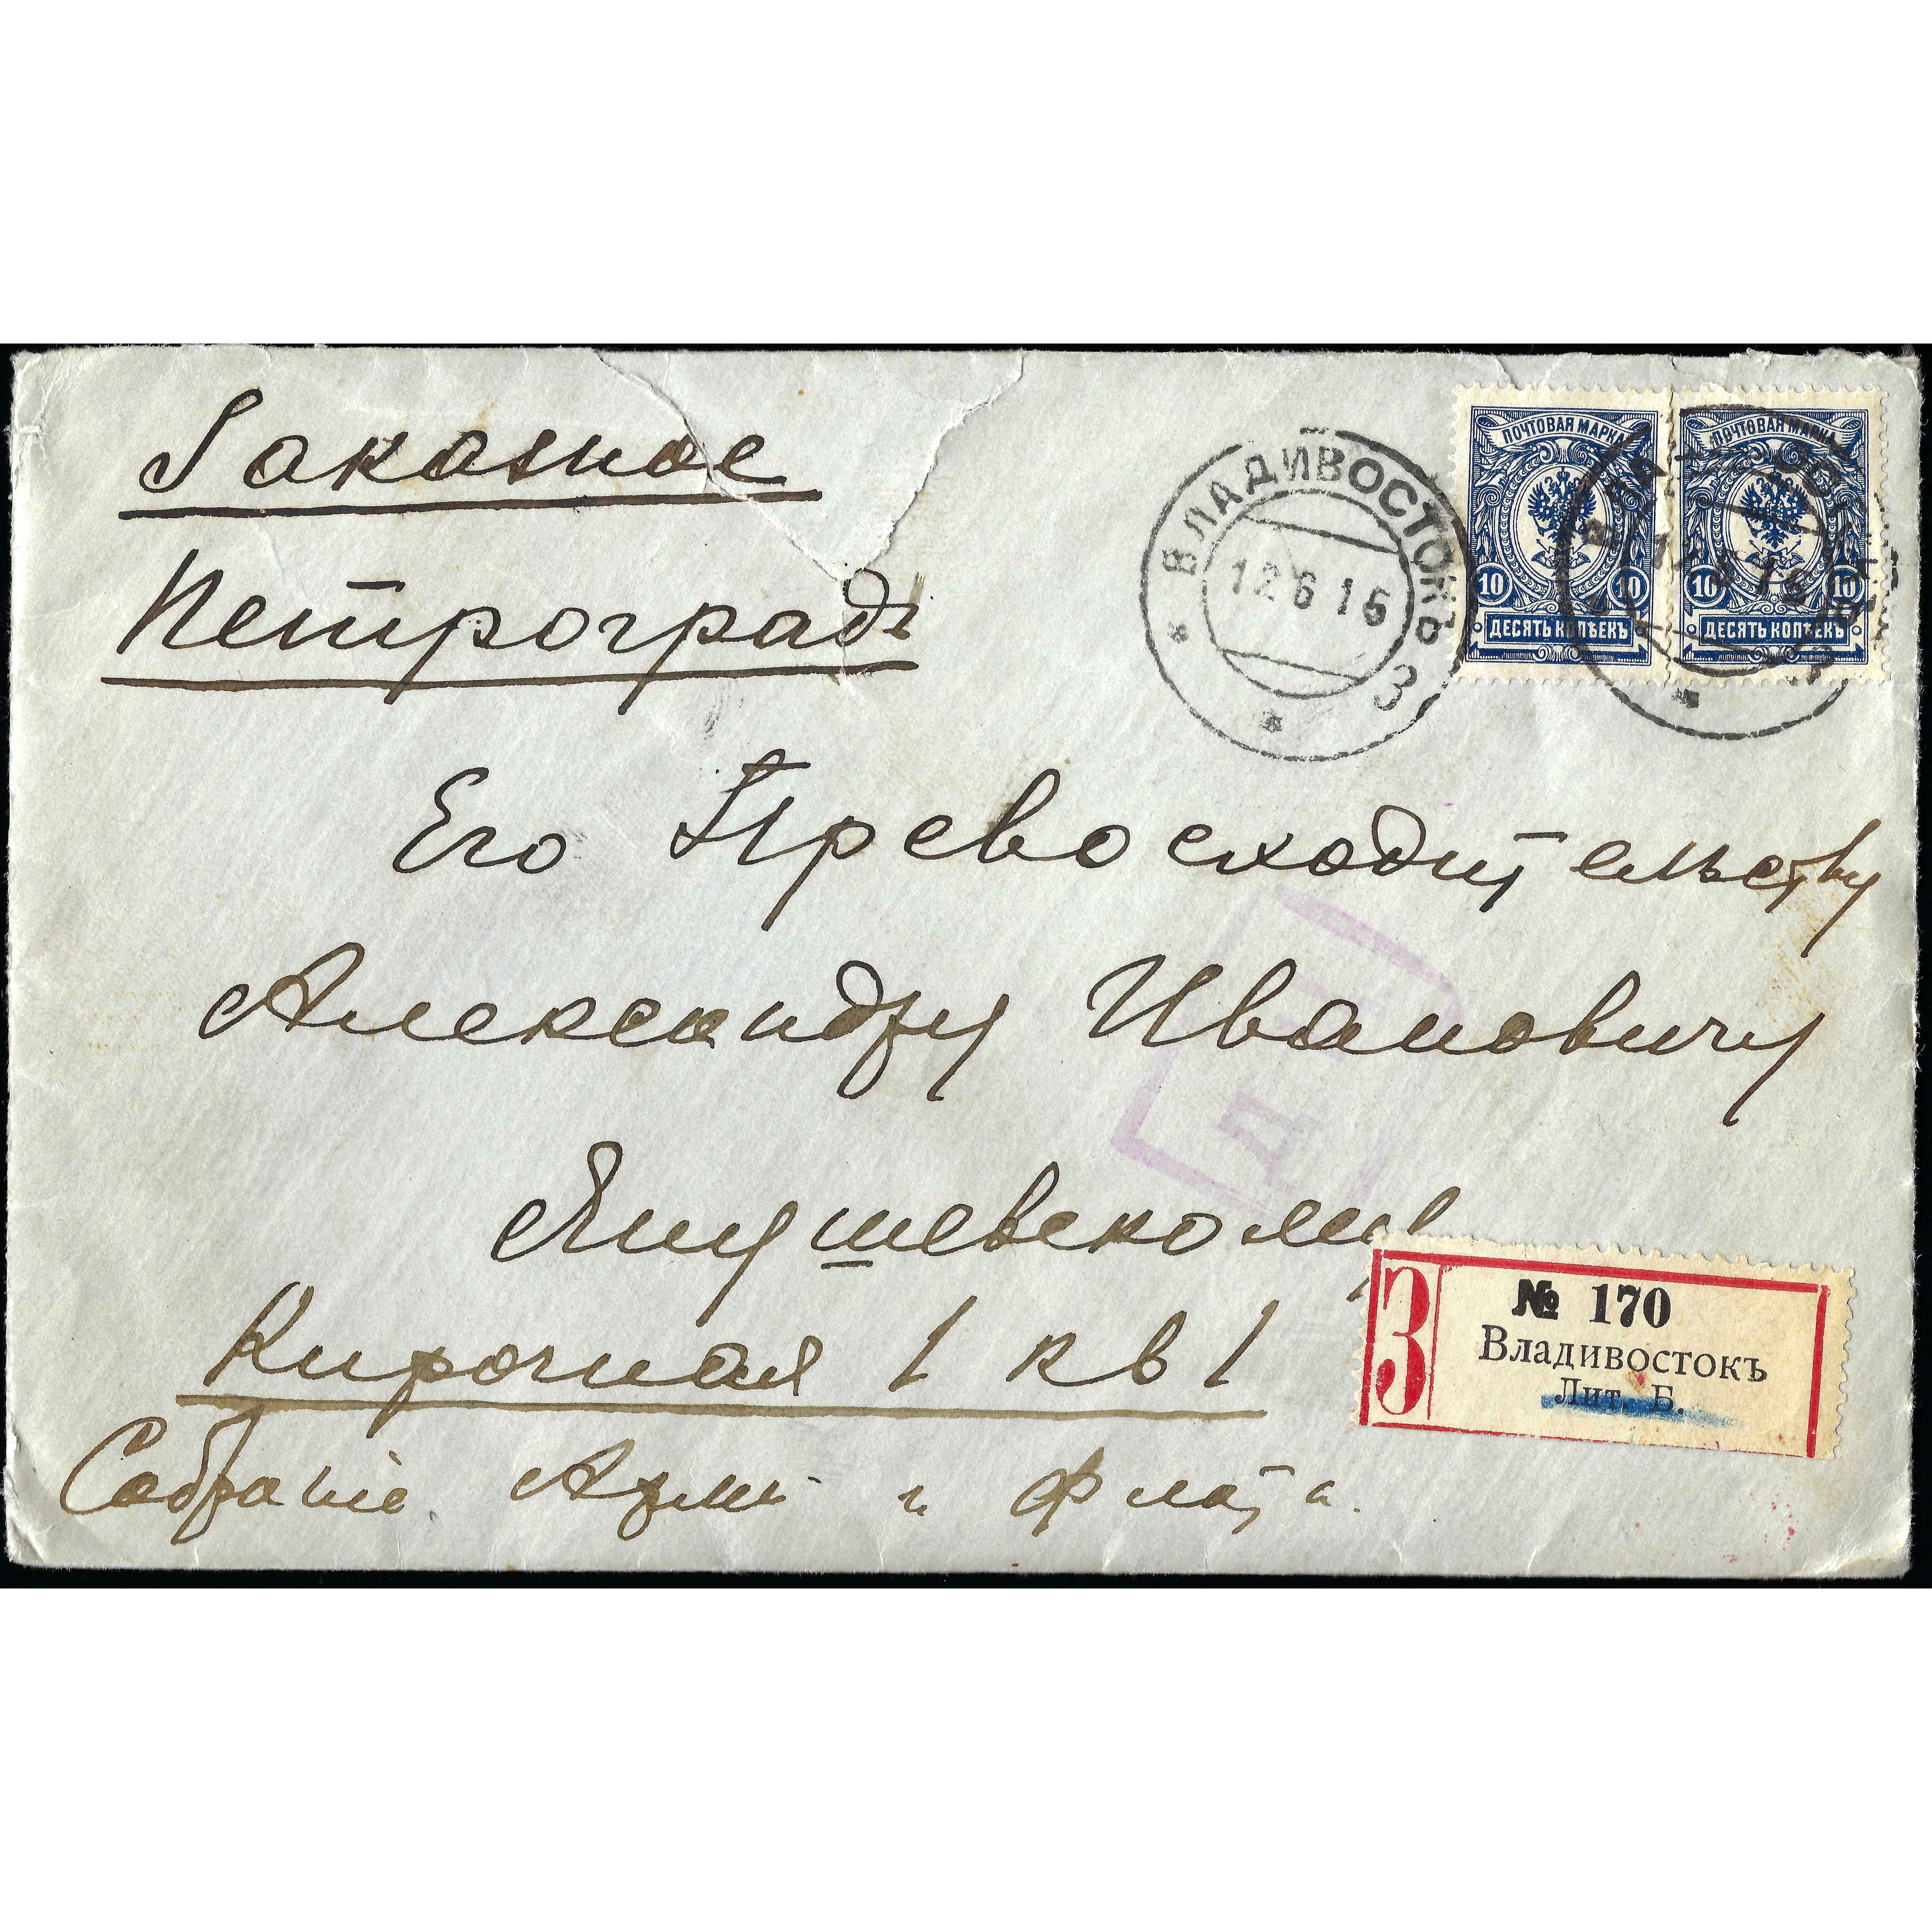 Заказное
Петроградъ
Его Превосходительству
Александру Ивановичу
Янушевскому
Кирочная 1 кв 1
Собраніе Арміи и Флота.
ВЛАДИВОСТОКЪ
12 6 16
З
ПОЧТОВАЯ МАРКА
10 10
ДЕСЯТЬ КОПѢЕКЪ
ПОЧТОВАЯ МАРКА
10 10
ДЕСЯТЬ КОПѢЕКЪ
З
№ 170
Владивостокъ
Лит. Б.